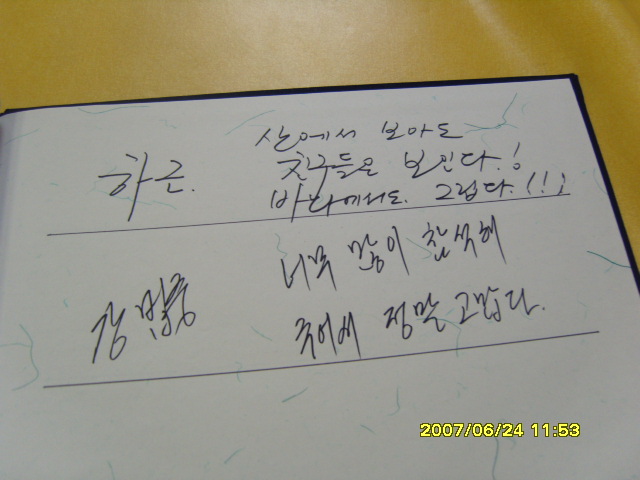 하근.
산에서 보아도
친구들은 보인다.!
바다에서도. 그립다.(!!)
너무 많이 참석해
주어서 정말 고맙다.
2007/06/24 11:53